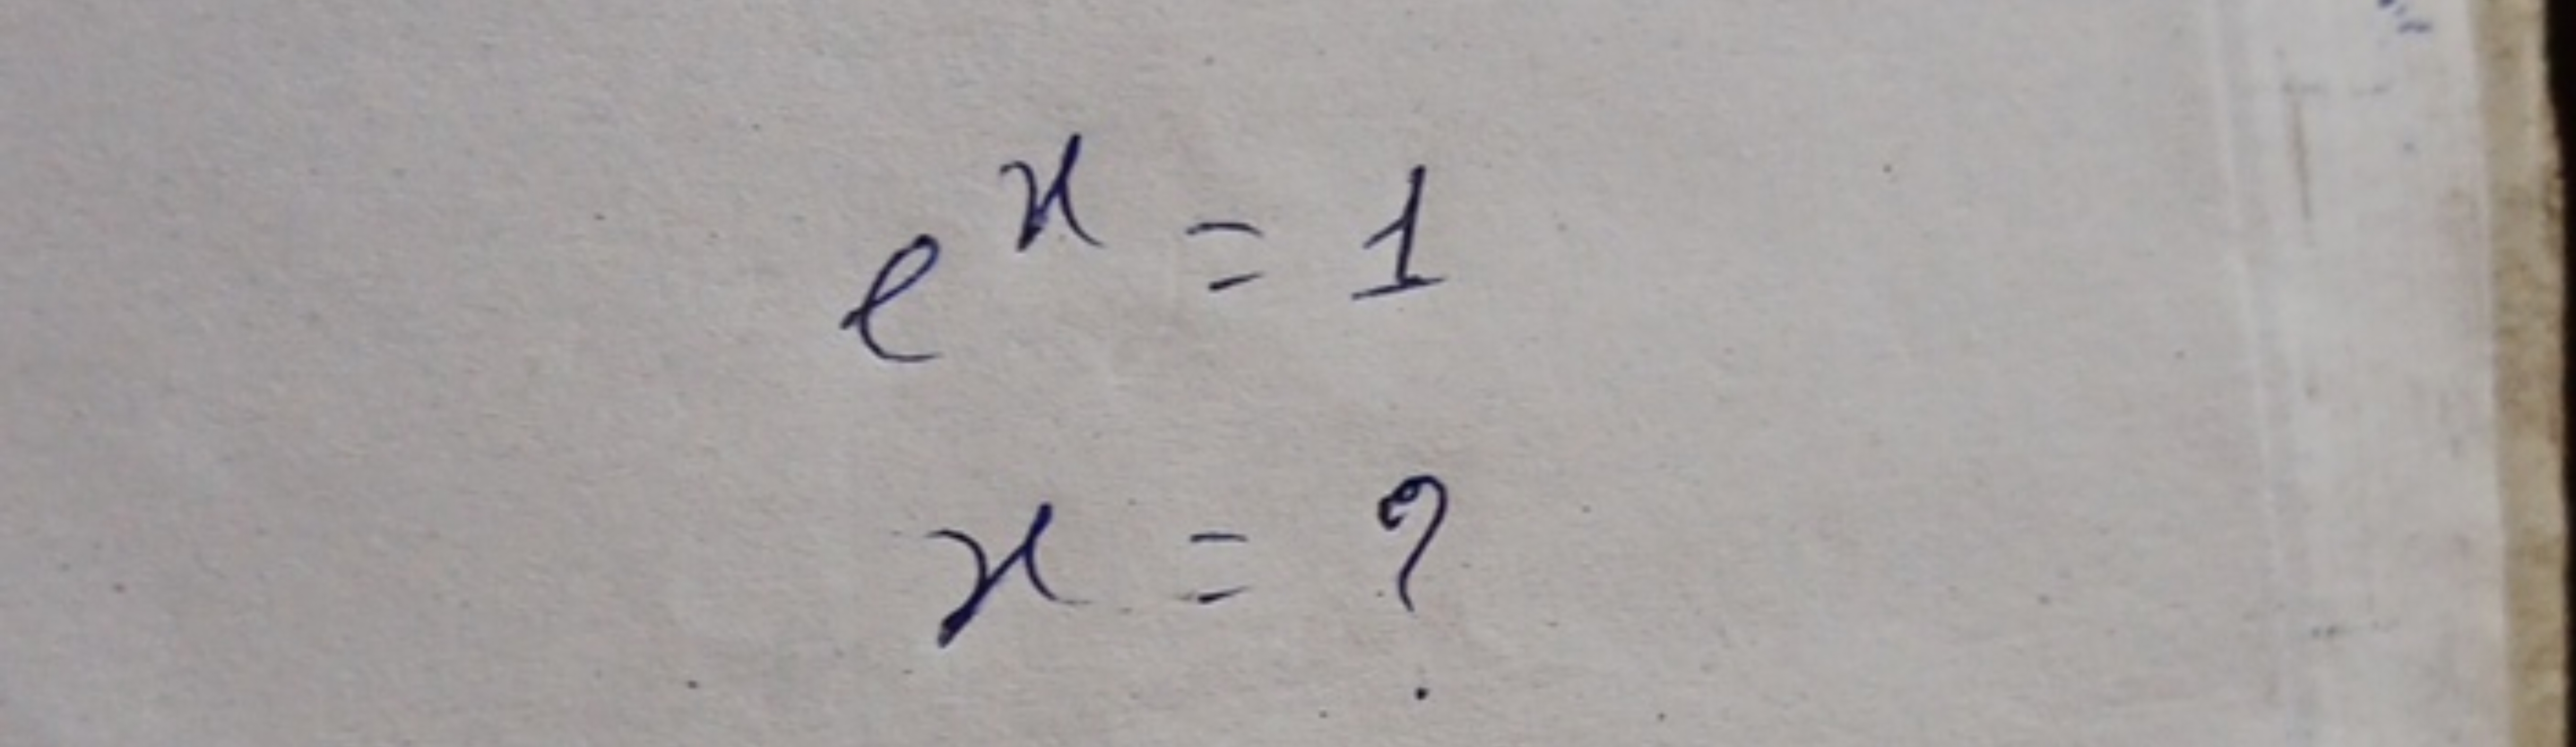 e^x = 1
x = ?